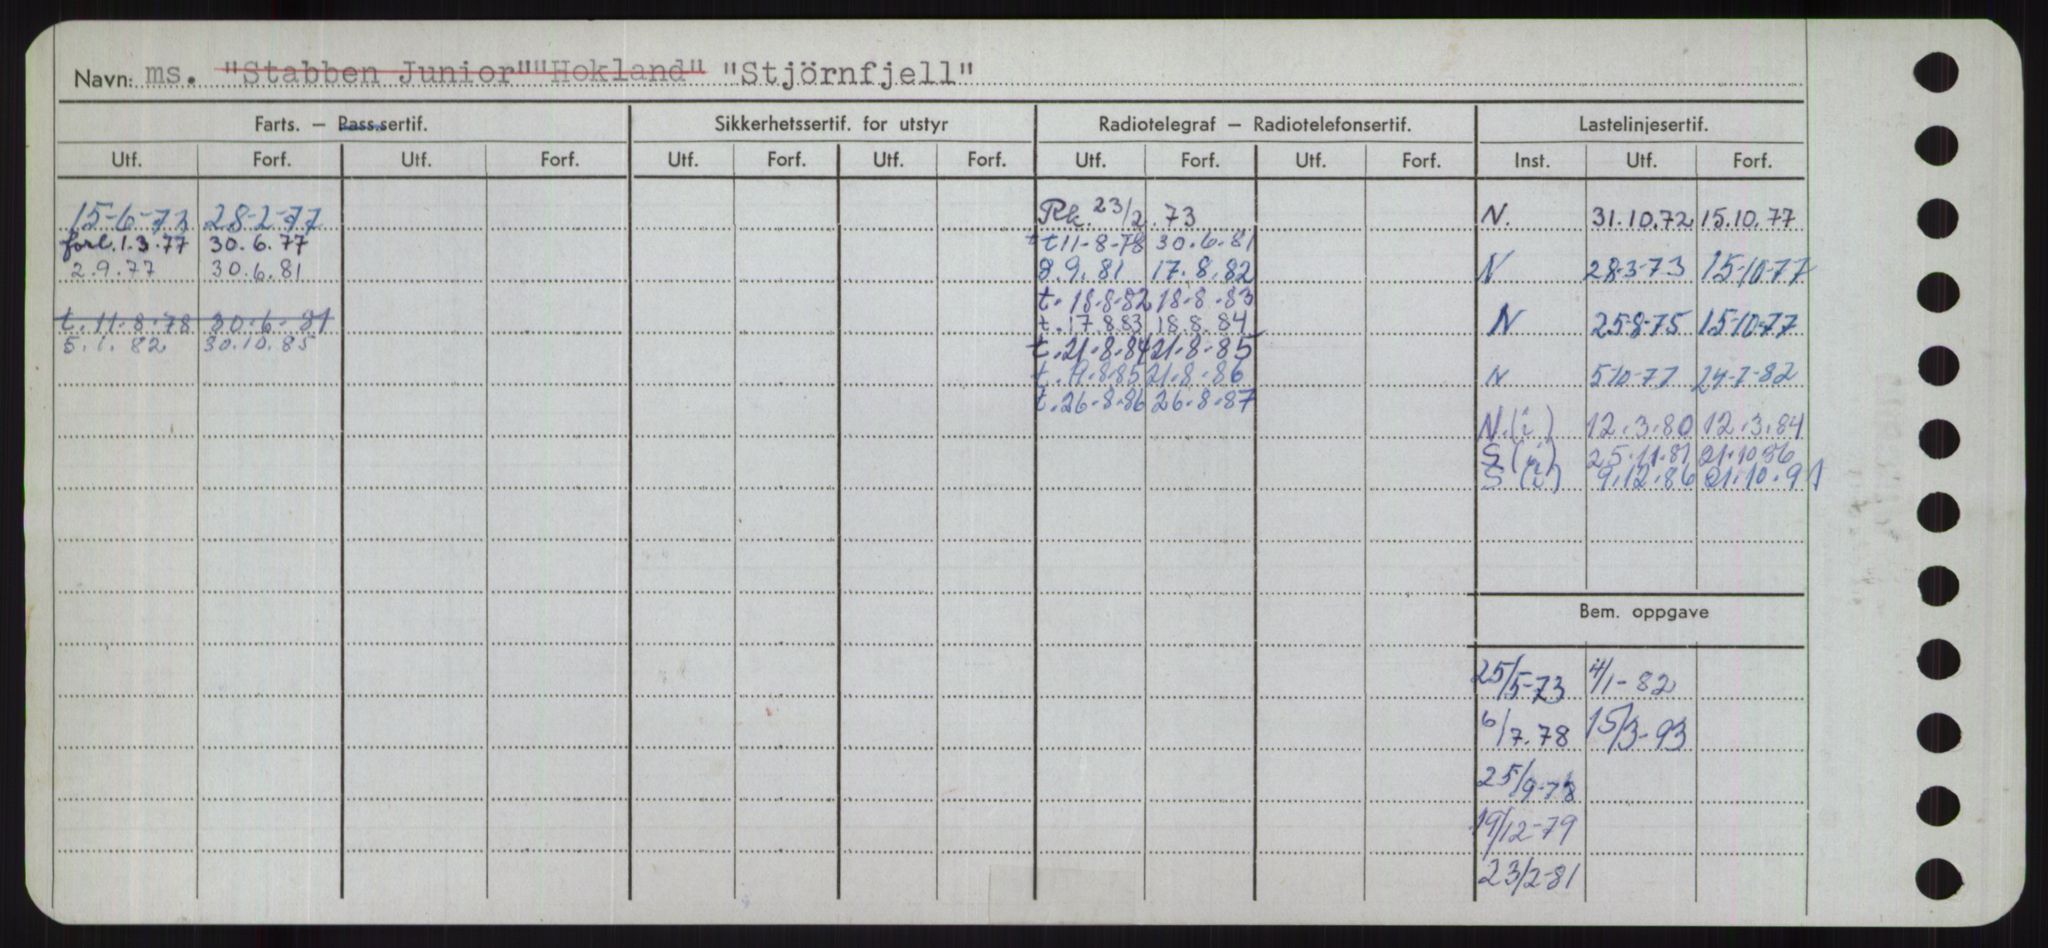 Navn: ms. "Stabben Junior" "Hokland" "Stjörnfjell"
Farts. — Pass.sertif. Sikkerhetssertif. for utstyr Radiotelegraf — Radiotelefonsertif. Lastelinjesertif.
Utf. Forf. Utf. Forf. Utf. Forf. Utf. Forf. Utf. Forf. Utf. Forf. Inst. Utf. Forf.
15-6-73 28-2-77 Rk. 23/2.73 N. 31.10.72 15.10.77
forl. 1.3.77 30.6.77 t 11-8-78 30.6.81
2.9.77 30.6.81 8.9.81 17.8.82 N 28-3-73 15-10-77
t. 18-8-82 18-8-83
t. 11-8-78 30-6-81 t. 17.8.83 18.8.84 N 25-8-75 15-10-77
5.1.82 30.10.85 t. 21.8.84 21.8.85
t. 19.8.85 21.8.86 N 5-10-77 24-7-82
t. 26-8-86 26-8-87
N.(i) 12.3.80 12.3.84
S (i) 25.11.81 21.10 86
S (i) 9.12.86 21.10.91
Bem. oppgave
25/5-73 4/1-82
6/7.78 15/3-93
25/9-78
19/12-79
23/2-81